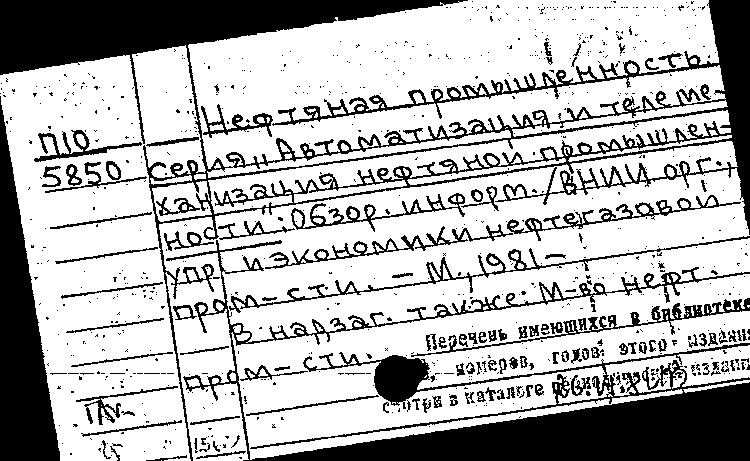 Нефтяная промышленность.
П10
5850
Серия „Автоматизация и телеме-
ханизация нефтяной промышлен-
ности“: Обзор. информ. / ВНИИ орг.,
упр. и экономики нефтегазовой
пром-сти. – М., 1981 –
В надзаг. также: М-во нефт.
пром-сти.
Перечень имеющихся в библиотеке
номеров, годов этого издания
смотри в каталоге периодических издан